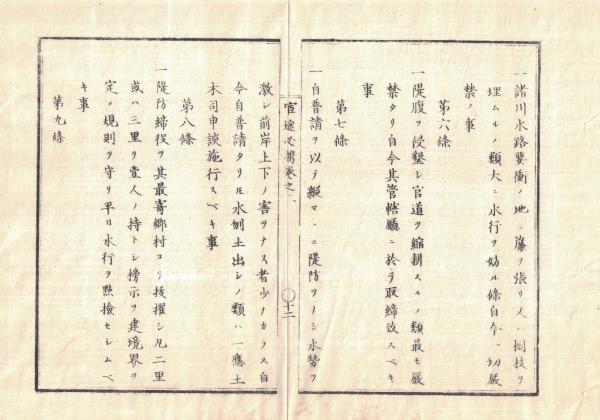 一諸川水路要衝ノ地ニ簾ヲ張リ又ハ樹枝ヲ
埋ムルノ類大ニ水行ヲ妨ル條自今一切嚴
禁ノ事
第六條
一隄腹ヲ侵墾シ官道ヲ縮耕スルノ類最モ嚴
禁タリ自今其管轄廳ニ於テ取締致スベキ
事
第七條
一自普請ヲ以テ縦マヽニ隄防ヲナシ水勢ヲ
官途必携巻之一
〇十二
激シ前岸上下ノ害ヲナス者少ナカラス自
今自普請タリ𪜈水刎土出シノ類ハ一應土
木司申談施行スベキ事
第八條
一隄防締役ヲ其最寄郷村ヨリ抜擢シ凡二里
或ハ三里ヲ壹人ノ持トシ榜示ヲ建境界ヲ
定メ規則ヲ守リ平日水行ヲ㸃撿セシムベ
キ事
第九條